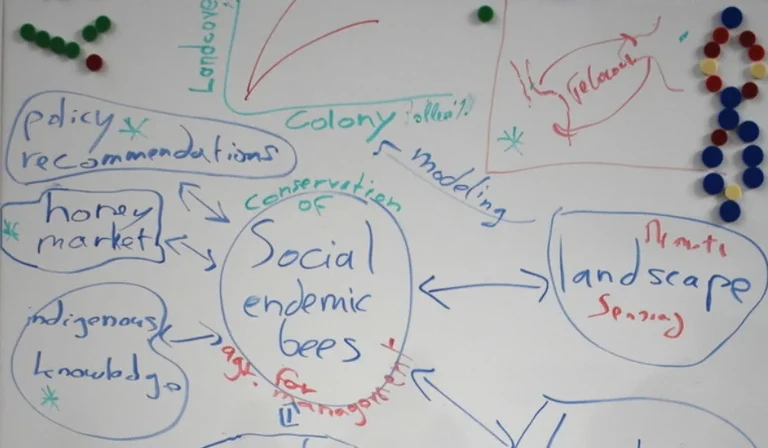 Landcove
Colony
policy
recommendations
modeling
honey
market
conservation
of
Social
endemic
bees
Remote
landscape
Sensing
indigenous
knowledge
agr. for
management